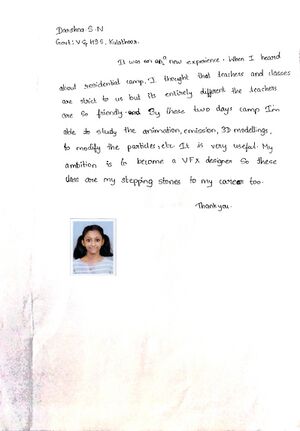 Darshna S.N
Govt: V G HSS, Kulathoor.
It was an a new experience. When I heard
about residential camp, I thought that teachers and classes
are strict to us but its entirely different the teachers
are so friendly. By these two days camp I'm
able to study the animation, emission, 3D modellings,
to modify the particles, etc. It is very useful. My
ambition is to become a VFX designer So these
class are my stepping stones to my career too.
Thank you.